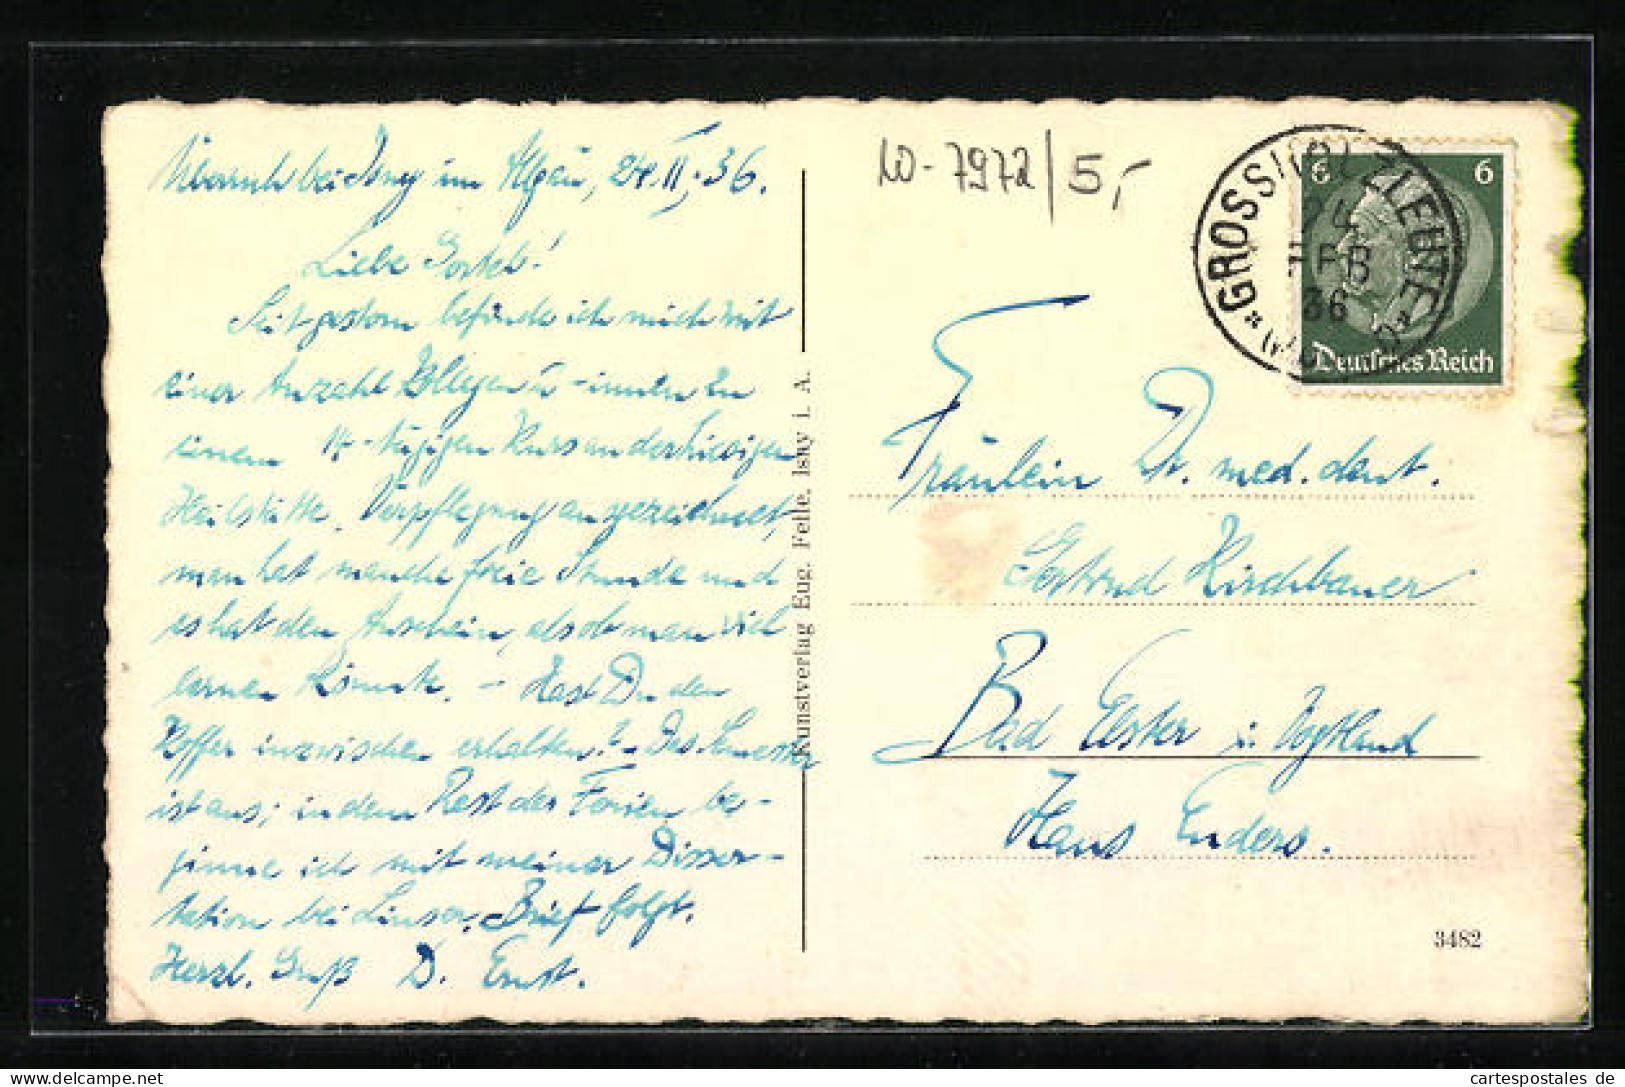 Überruh bei Isny im Algäu, 24.II.36.
Liebe
Seit gestern befinde ich mich mit
einer Anzahl Kollegen u -innen zu
einem 14-tägigen Kurs an der hiesigen
Heilstätte. Verpflegung ausgezeichnet,
man hat manche freie Stunde und
es hat den Anschein, als ob man viel
lernen könnte. - Hast Du den
Koffer inzwischen erhalten? - Das Semester
ist aus; in dem Rest der Ferien be-
ginne ich mit meiner Disser-
tation bei Linser. Brief folgt.
Herzl. Gruß D. Ernst.
Kunstverlag Eug. Felle, Isny i. A.
10-7972/5,-
GROSSHOLZLEUTE
24
FEB
36
6 6
Deutsches Reich
Fräulein Dr. med. dent.
Gertrud Hirschbauer
Bad Elster i. Vogtland
Haus Enders.
3482
cartespostales de